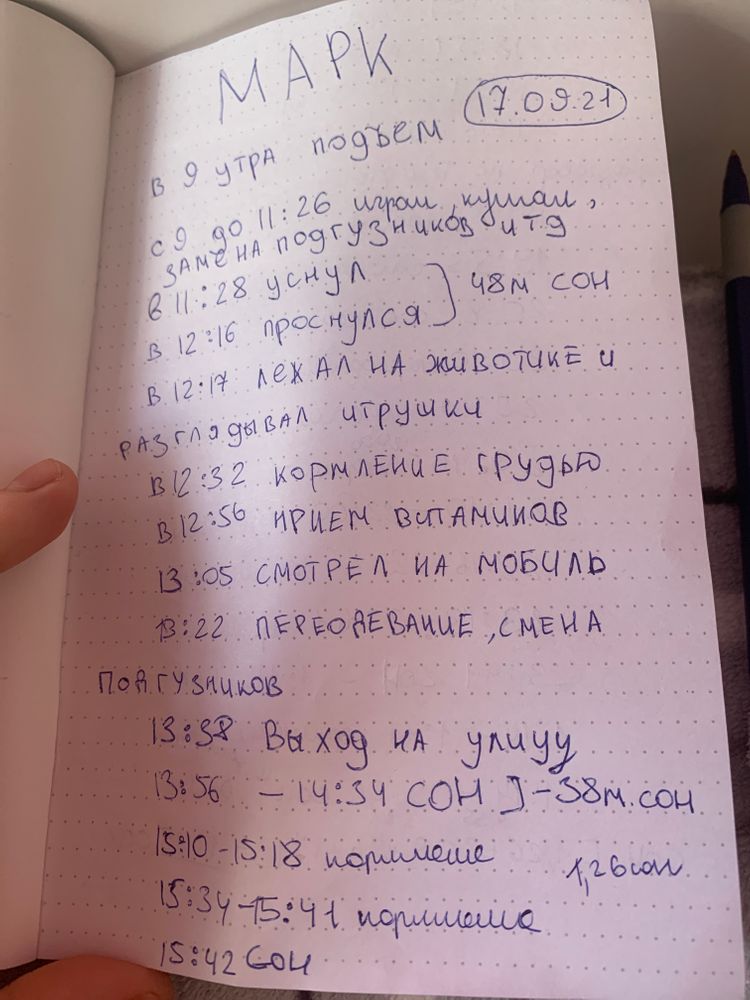 МАРК
17.09.21
в 9 утра подъем
с 9 до 11:26 играл, кушал,
замена подгузников и тд
в 11:28 уснул
48м сон
в 12:16 проснулся
в 12:17 лежал на животике и
разглядывал игрушки
в 12:32 кормление грудью
в 12:56 прием витаминов
13:05 смотрел на мобиль
13:22 переодевание, смена
подгузников
13:38 Выход на улицу
13:56 – 14:34 СОН ] – 38м. сон
15:10 - 15:18 кормление
1,26 сон
15:34 - 15:41 кормление
15:42 Сон